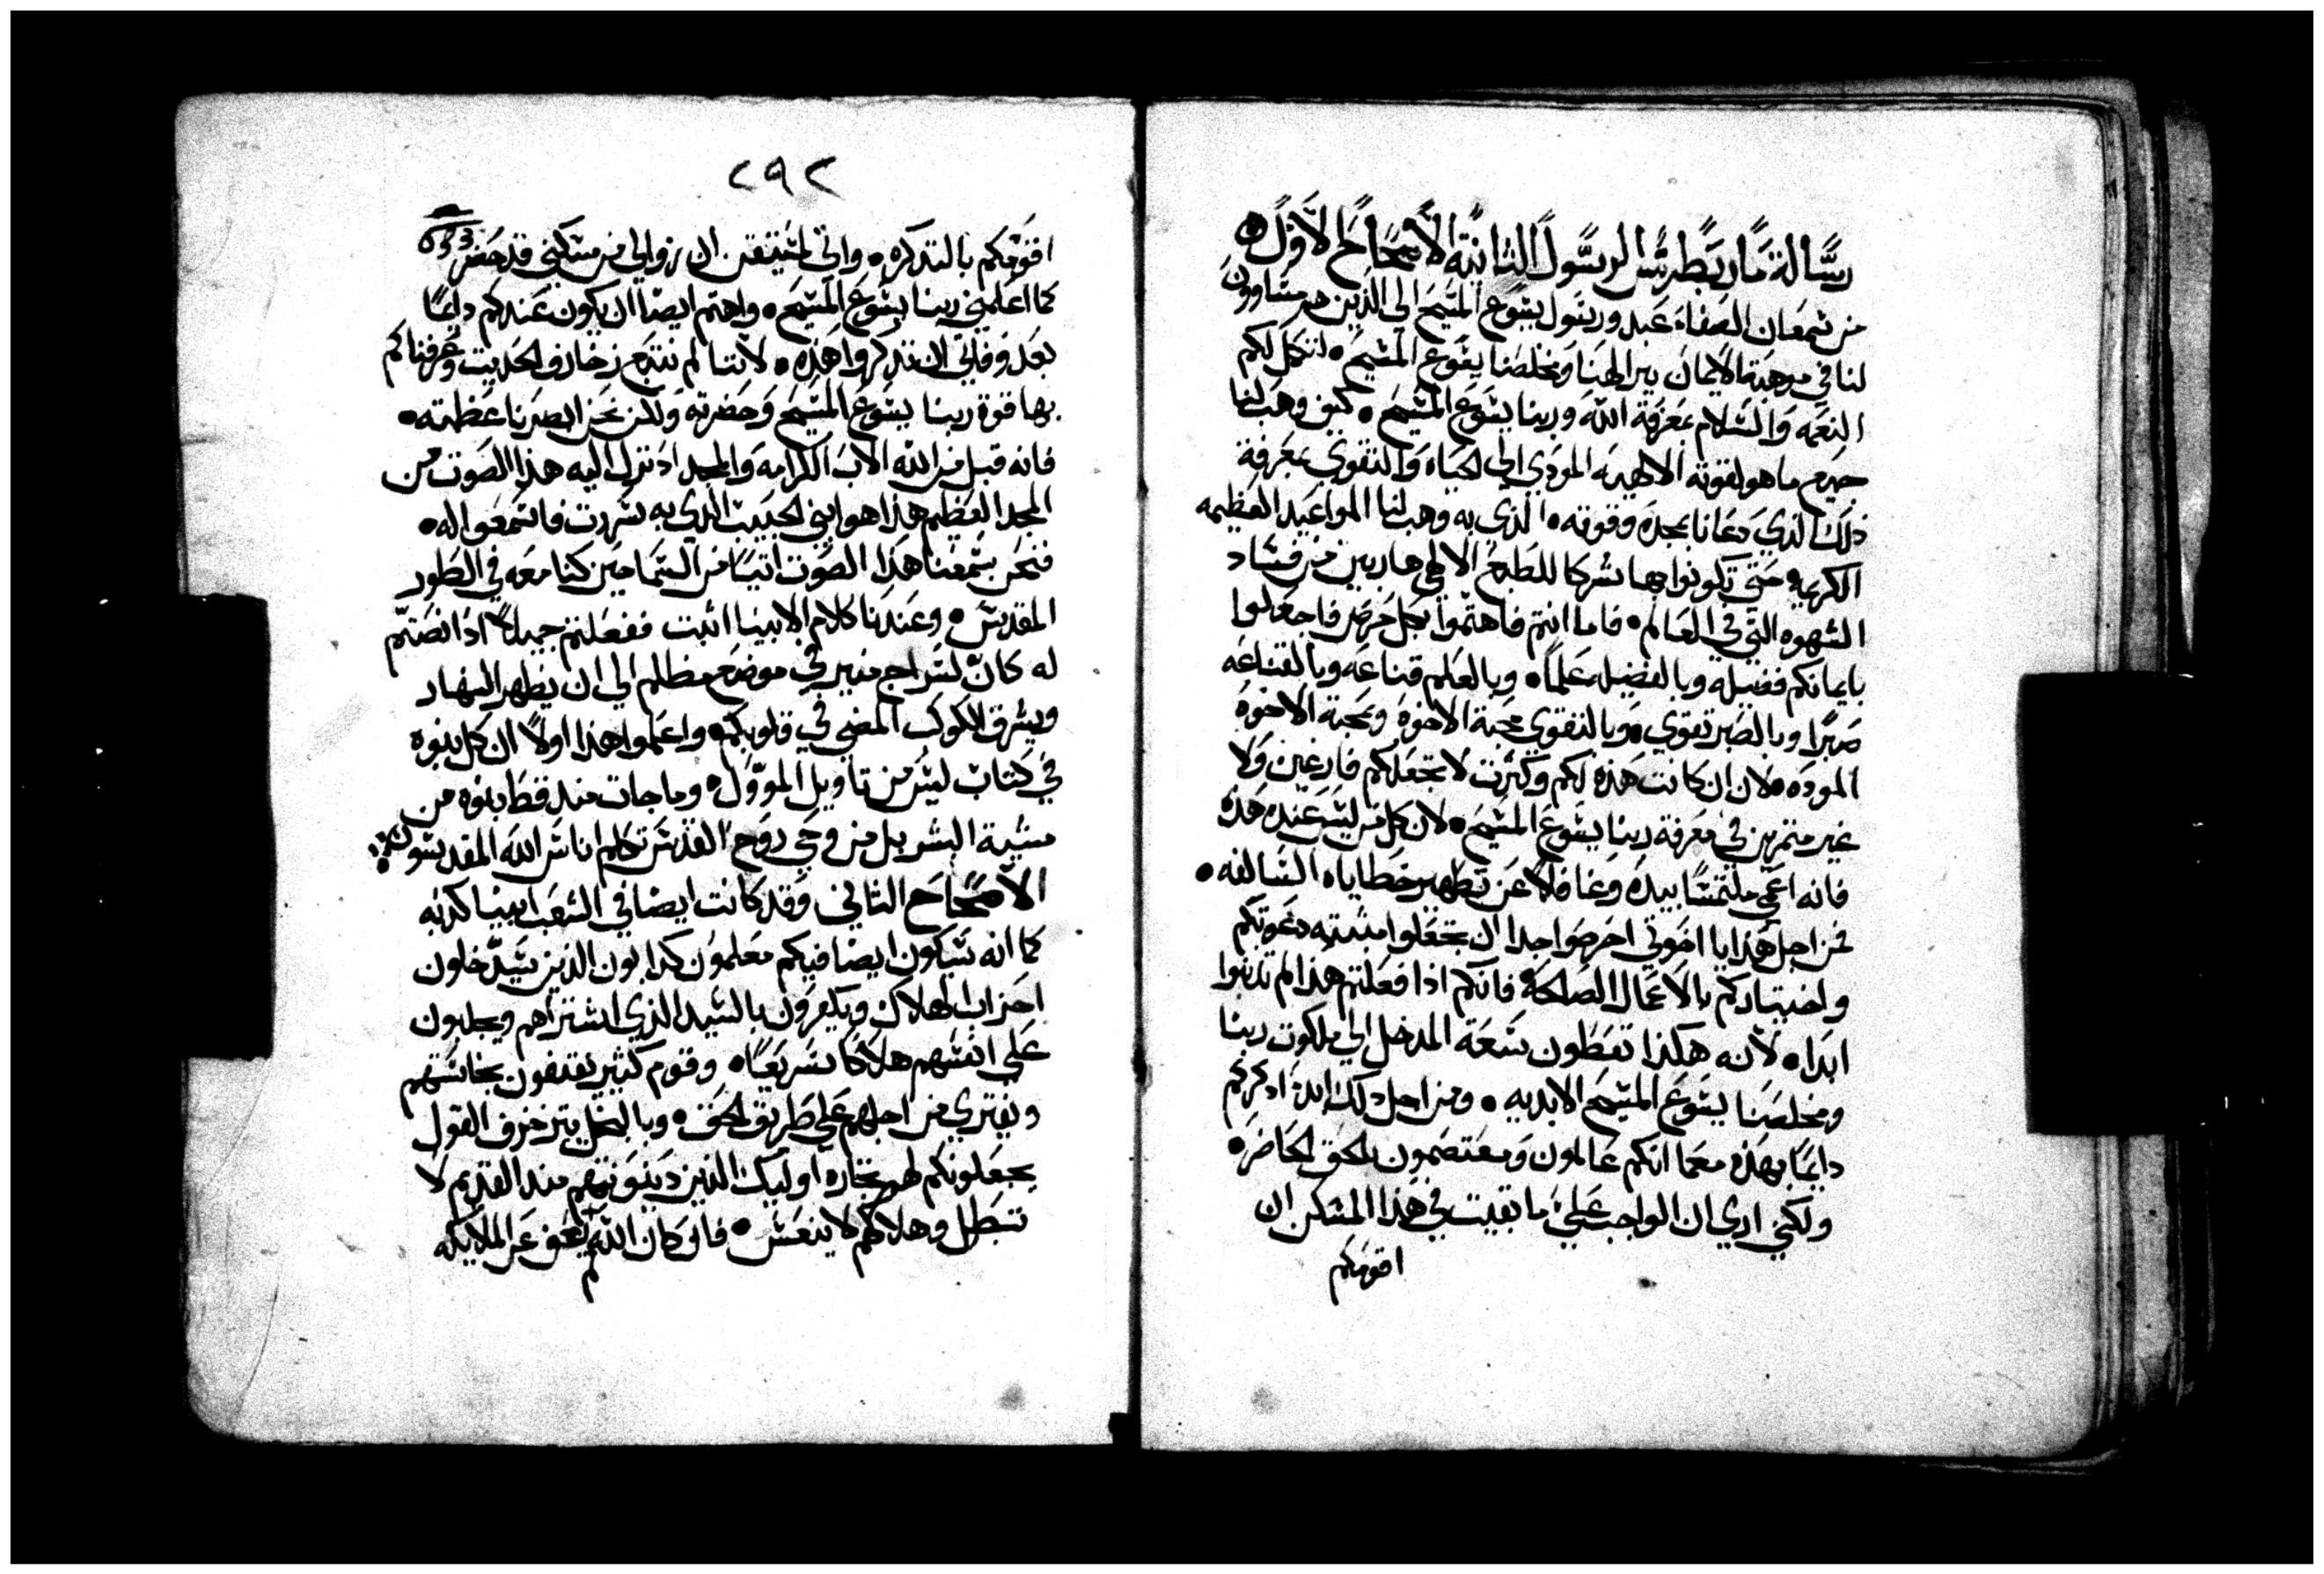 رسالة مار بطرس الرسول الثانية الأصحاح الأول
من شمعان الصفاء عبد ورسول يشوع المسيح الي الذين هم متساوون
لنا في موهبة الايمان ببر الهنا ومخلصنا يشوع المسيح • لتكمل لكم
النعمه والسلام بمعرفة الله وربنا يشوع المسيح • كيف وهب لنا
جميع ما هو لقوته الالهيه المودي الي الحياه والتقوي بمعرفة
ذلك الذي دعانا بمجده وقوته • الذي به وهب لنا المواعيد العظيمه
الكريمه حتى تكونوا بها شركا للطبع الالهي هاربين من فساد
الشهوه التي في العالم • فاما انتم فاهتموا بكل حرص فاجعلوا
بايمانكم فضيله وبالفضيله علمًا • وبالعلم قناعه وبالقناعه
صبرًا وبالصبر تقوي • وبالتقوي محبة الاخوه وبمحبة الاخوه
الموده • لان ان كانت هذه لكم وكثرت لا تجعلكم فارغين ولا
غير مثمرين في معرفة ربنا يشوع المسيح • لان كل من ليس عنده هذه
فانه اعمي ملتمسًا بيده وغافلاً عن تطهير خطاياه السالفه •
فمن اجل هذا يا اخوتي احرصوا جدا ان تجعلوا مثبته دعوتكم
واختياركم بالاعمال الصالحه فانكم اذا فعلتم هذا لم تذنبوا
ابدا • لانه هكذا تعطون سعة المدخل الي ملكوت ربنا
ومخلصنا يشوع المسيح الابديه • ومن اجل ذلك ابدا اذكركم
دايمًا بهذه معما انكم عالمون ومعتصمون بالحق الحاضر •
ولكني اري ان الواجب علي ما بقيت في هذا المسكن ان
اقومكم
٢٩٢
اقومكم بالتدكره • واني لمستيقن ان زوالي من مسكني قد حضر
كما اعلمني ربنا يشوع المسيح • واهتم ايضا ان يكون عندكم دايمًا
بعد وفاتي ان تتدكروا هذه • لأننا لم نتبع زخارف الحديث وعرفناكم
بها قوة ربنا يشوع المسيح وحضرته ولكن نحن ابصرنا عظمته •
فانه قبل من الله الاب الكرامه والمجد اد نزل اليه هذا الصوت من
المجد العظيم هذا هو ابني الحبيب الذي به سررت فاسمعوا له •
فنحن سمعنا هذا الصوت اتيًا من السما حين كنا معه في الطور
المقدس • وعندنا كلام الانبيا اثبت ففعلتم جميلاً اذا انصتم
له كان لسراج منير في موضع مظلم الي ان يظهر النهار
ويشرق الكوكب المضي في قلوبكم • واعلموا هذا اولاً ان كل نبوه
في كتاب ليس من تاويل الموول • وما جات مند قط نبوه من
مشية البشر بل من وحي روح القدس تكلم اناس الله المقديسون •
الأصحاح الثاني وقد كانت ايضا في الشعب انبيا كدبه
كما انه سيكون ايضا فيكم معلمون كدابون الذين سيدخلون
احزاب الهلاك ويكفرون بالسيد الذي اشتراهم ويجلبون
علي انفسهم هلاكا سريعًا • وقوم كثير يقتفون نجاستهم
ويفتري من اجلهم علي طريق الحق • وبالبخل بتزخرف القول
يجعلونكم لهم تجاره اوليك الذين دينونتهم مند القديم لا
تبطل وهلاكهم لا ينعس • فان كان الله لم يعف عن الملايكه